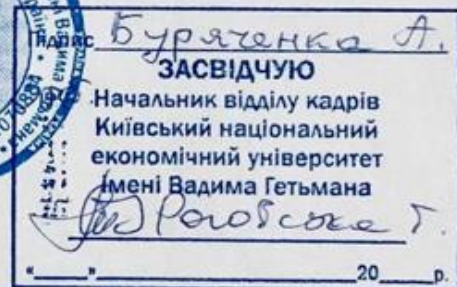 Підпис Буряченка А.
ЗАСВІДЧУЮ
Начальник відділу кадрів
Київський національний
економічний університет
імені Вадима Гетьмана
Т.
«___»___________20____р.